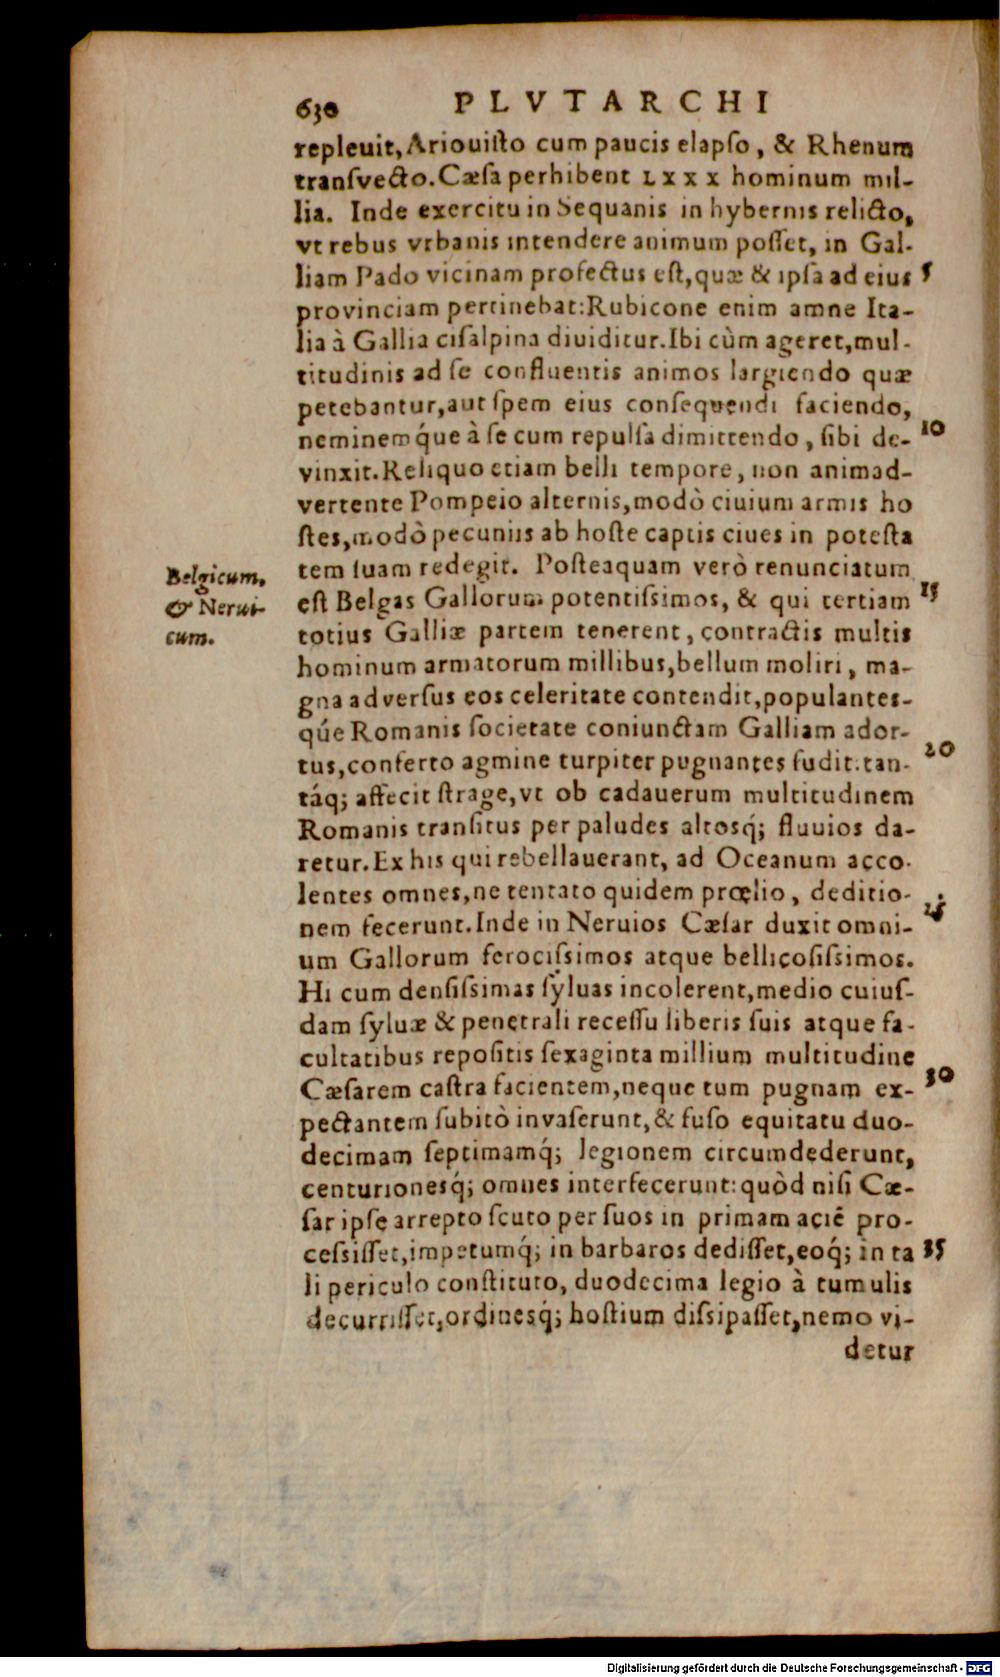 630 PLVTARCHI
repleuit, Ariouisto cum paucis elapſo, & Rhenum
tranſvecto. Cæſa perhibent LXXX hominum mil-
lia. Inde exercitu in Sequanis in hybernis relicto,
vt rebus vrbanis intendere animum poſſet, in Gal-
liam Pado vicinam profectus eſt, quæ & ipſa ad eius 5
provinciam pertinebat: Rubicone enim amne Ita-
lia à Gallia ciſalpina diuiditur. Ibi cùm ageret, mul-
titudinis ad ſe confluentis animos largiendo quæ
petebantur, aut ſpem eius conſequendi faciendo,
neminemq́ue à ſe cum repulſa dimittendo, ſibi de- 10
vinxit. Reliquo etiam belli tempore, non animad-
vertente Pompeio alternis, modò ciuium armis ho
ſtes, modò pecuniis ab hoſte captis ciues in poteſta
tem ſuam redegit. Poſteaquam verò renunciatum
Belgicum,
& Nerui-
cum.
eſt Belgas Gallorum potentiſsimos, & qui tertiam 15
totius Galliæ partem tenerent, contractis multis
hominum armatorum millibus, bellum moliri, ma-
gna adverſus eos celeritate contendit, populantes-
qúe Romanis ſocietate coniunctam Galliam ador-
tus, conferto agmine turpiter pugnantes fudit: tan- 20
táq; affecit ſtrage, vt ob cadauerum multitudinem
Romanis tranſitus per paludes altosq́; fluuios da-
retur. Ex his qui rebellauerant, ad Oceanum acco-
lentes omnes, ne tentato quidem prœlio, deditio-
nem fecerunt. Inde in Neruios Cæſar duxit omni- 25
um Gallorum ferociſsimos atque bellicoſiſsimos.
Hi cum denſiſsimas ſyluas incolerent, medio cuiuſ-
dam ſyluæ & penetrali receſſu liberis ſuis atque fa-
cultatibus repoſitis ſexaginta millium multitudine
Cæſarem caſtra facientem, neque tum pugnam ex- 30
pectantem ſubitò invaſerunt, & fuſo equitatu duo-
decimam ſeptimamq́; legionem circumdederunt,
centurionesq́; omnes interfecerunt: quòd niſi Cæ-
ſar ipſe arrepto ſcuto per ſuos in primam aciē pro-
ceſsiſſet, impetumq́; in barbaros dediſſet, eoq́; in ta 35
li periculo conſtituto, duodecima legio à tumulis
decurriſſet, ordinesq́; hoſtium diſsipaſſet, nemo vi-
detur
Digitalisierung gefördert durch die Deutsche Forschungsgemeinschaft - DFG